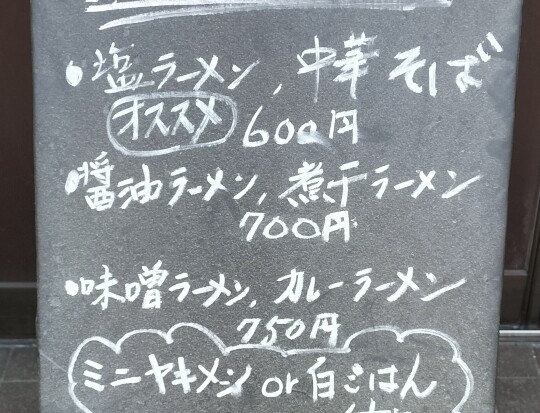 ・塩ラーメン, 中華そば
オススメ 600円
・醤油ラーメン, 煮干ラーメン
700円
・味噌ラーメン, カレーラーメン
750円
ミニヤキメシ or 白ごはん